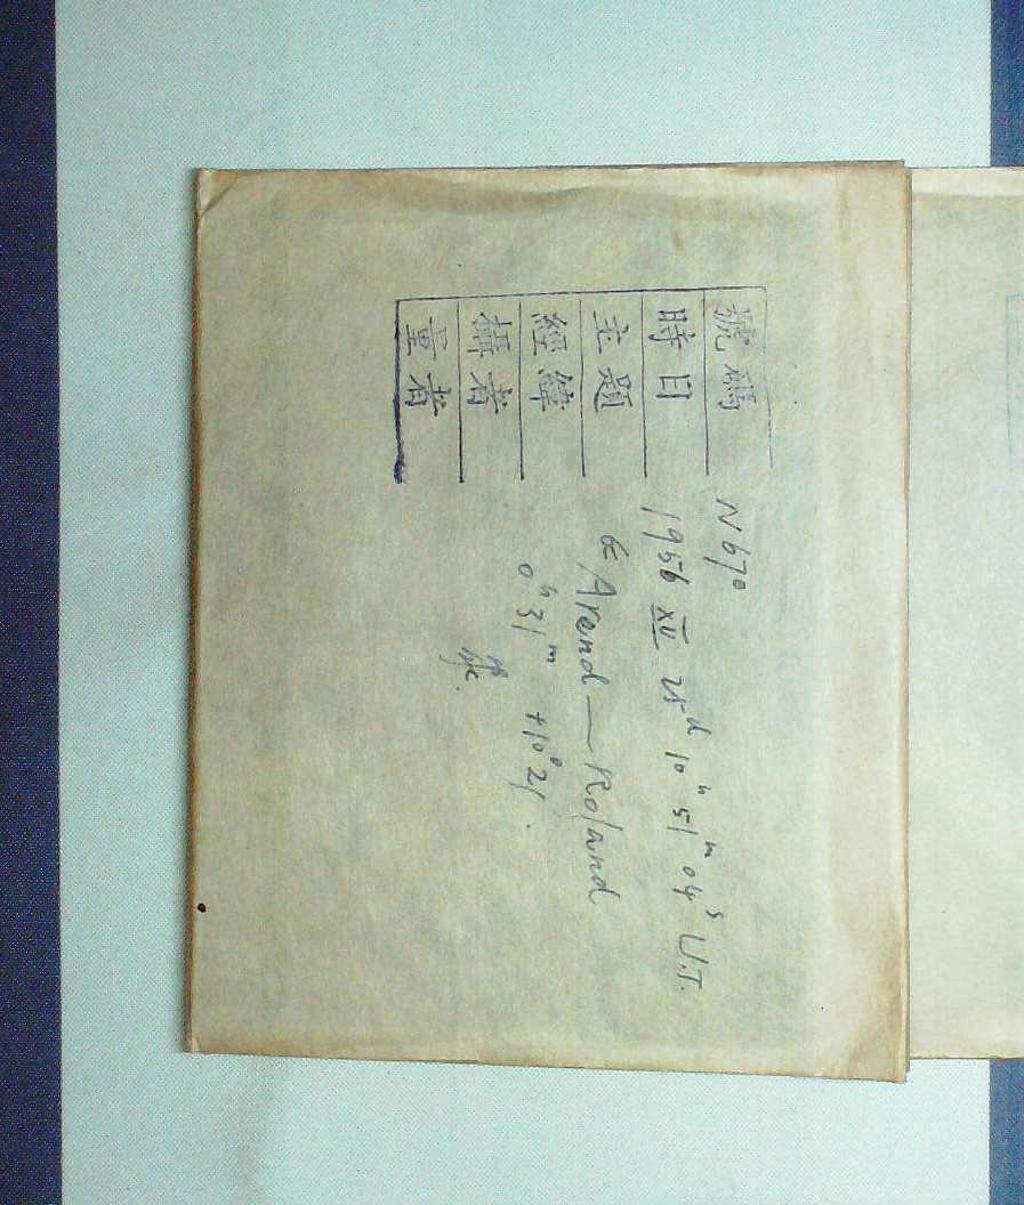 號碼 N 670
時日 1956 XII 25ᵈ 10ʰ 51ᵐ 04ˢ U.T.
主題 Arend — Roland
經緯 0ʰ 31ᵐ +10° 21'.
攝者
量者